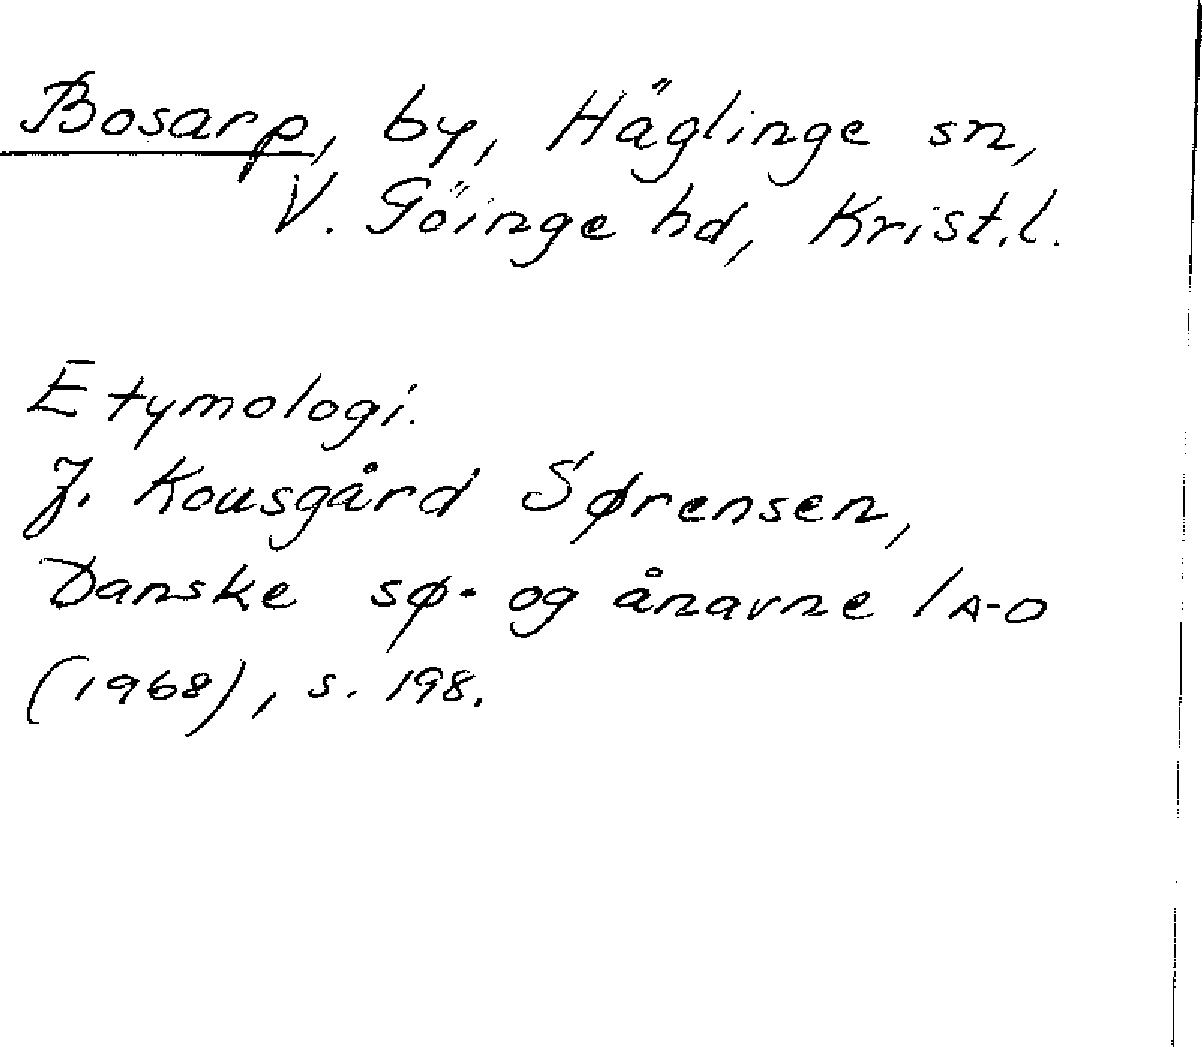 Bosarp, by, Häglinge sn,
V. Göinge hd, Krist.l.
Etymologi.
J. Kousgård Sørensen,
Danske sø- og ånavne 1 A-O
(1968), s. 198.